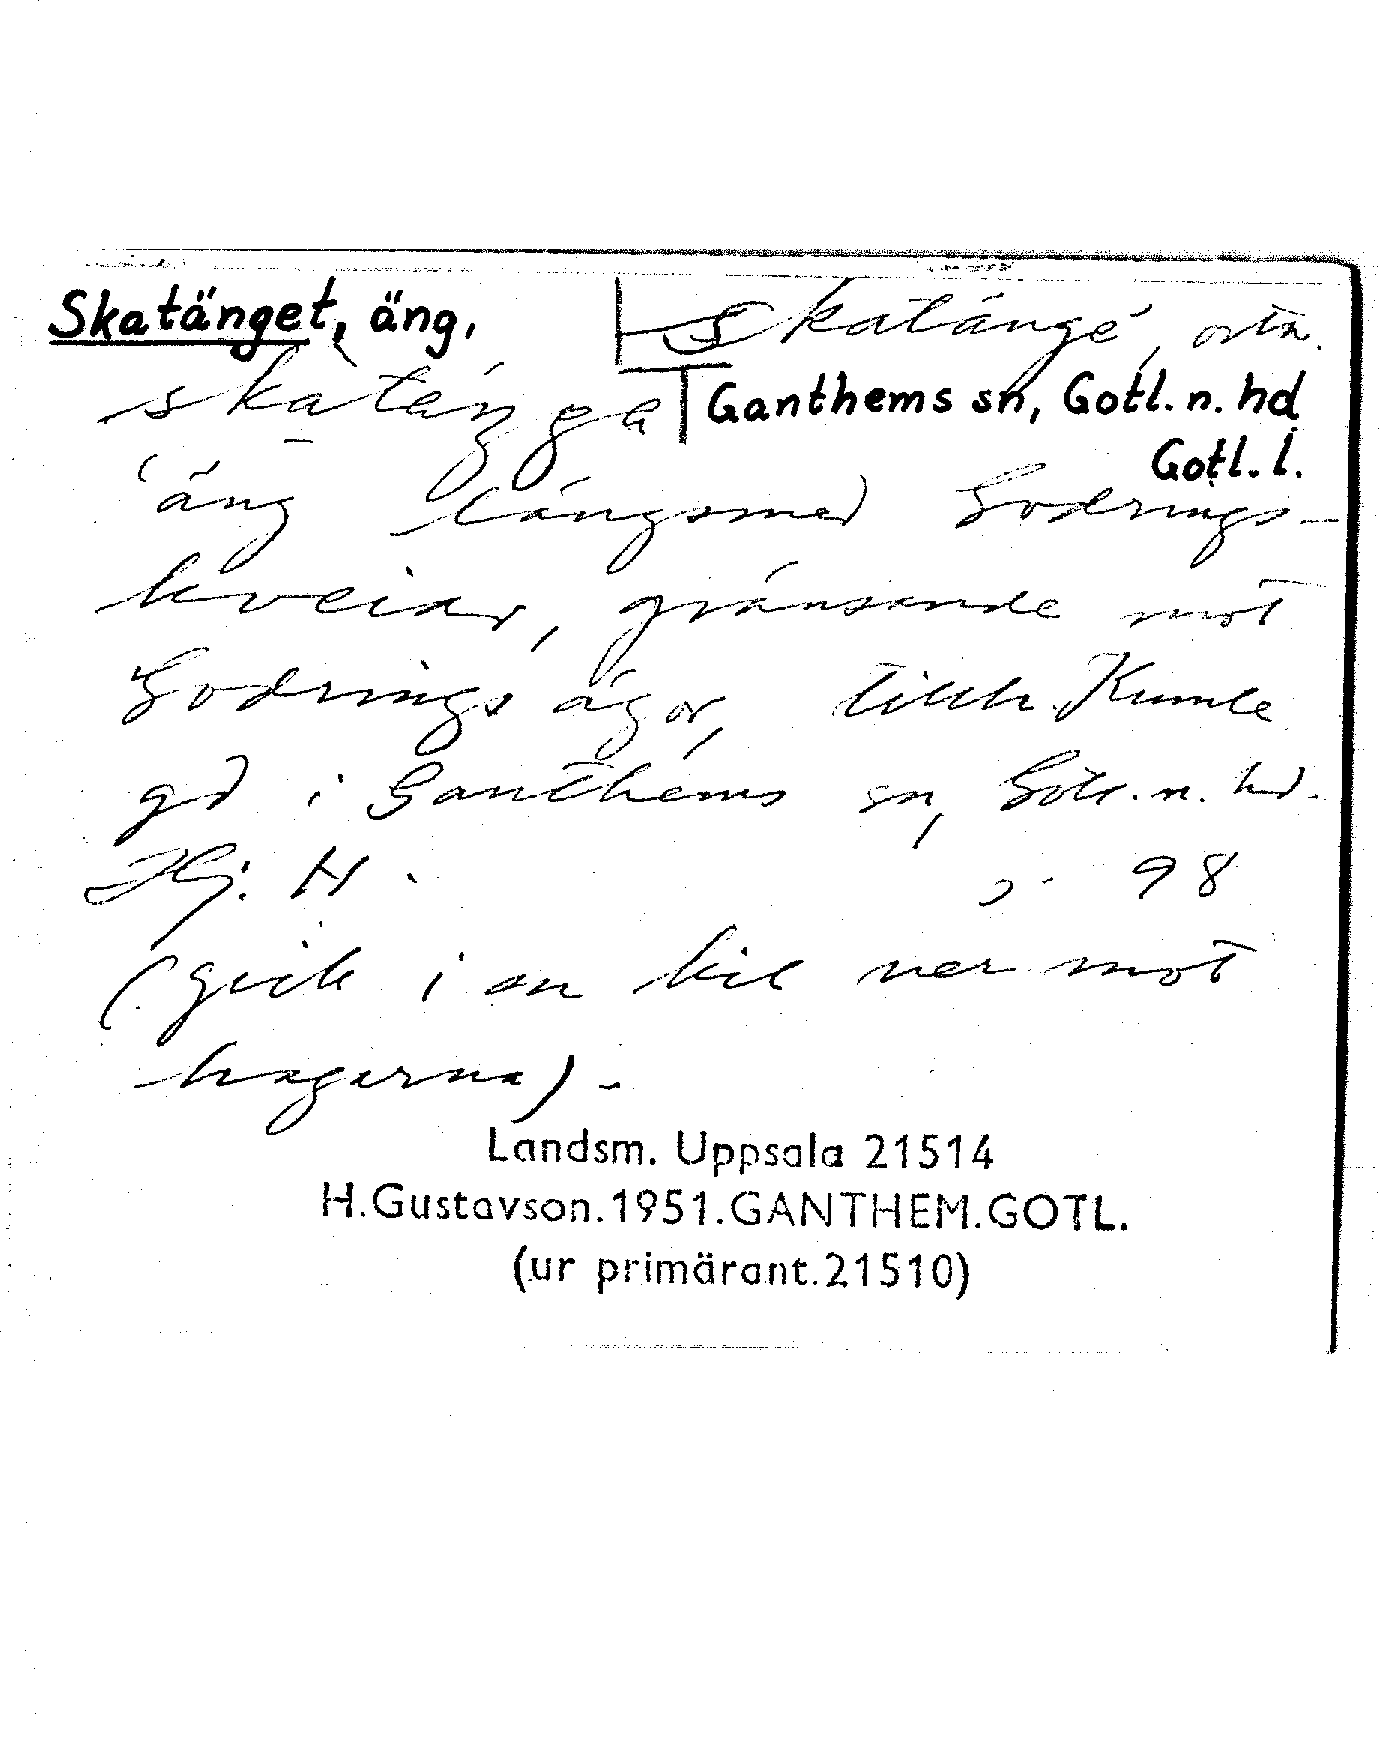 Skatänget, äng,
Skatänge, ortn.
Ganthems sn, Gotl. n. hd
Gotl. l.
äng längsmed Godrings-
kveiar, gränsande mot
Godrings ägor, tillh. Kumle
gd i Ganthems sn, Gotl. n. hd.
Hj. H. 98
(gick i en kil ner mot
hagarna).
Landsm. Uppsala 21514
H.Gustavson.1951.GANTHEM.GOTL.
(ur primärant.21510)